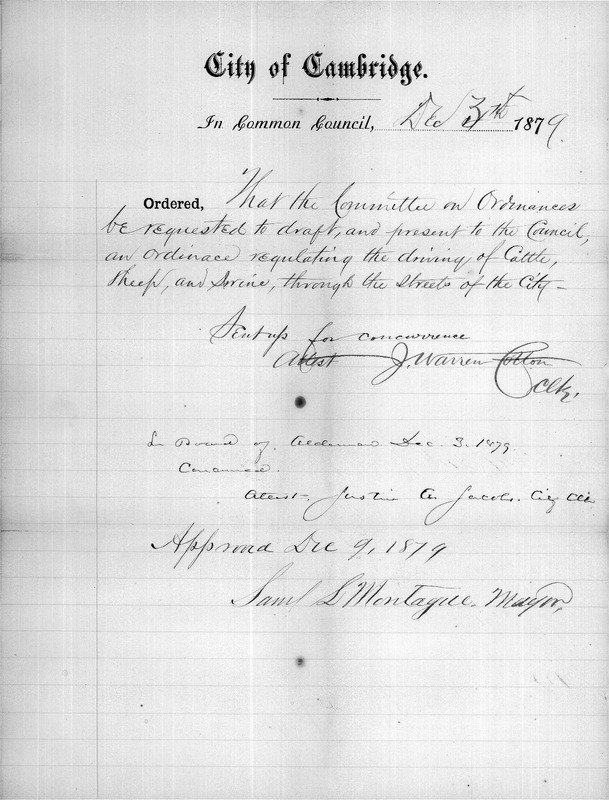 City of Cambridge.
In Common Council, Dec 3th 1879
Ordered, That the Committee on Ordinances
be requested to draft, and present to the Council,
an ordinace regulating the driving of Cattle,
Sheep, and Swine, through the Streets of the City—
Sent up for concurrence
Attest J. Warren Cotton
Clk.
In Board of Aldermen Dec. 3. 1879.
Concurred.
Attest. Justin A. Jacobs. City Clk
Approved Dec 9, 1879
Saml L Montague. Mayor,